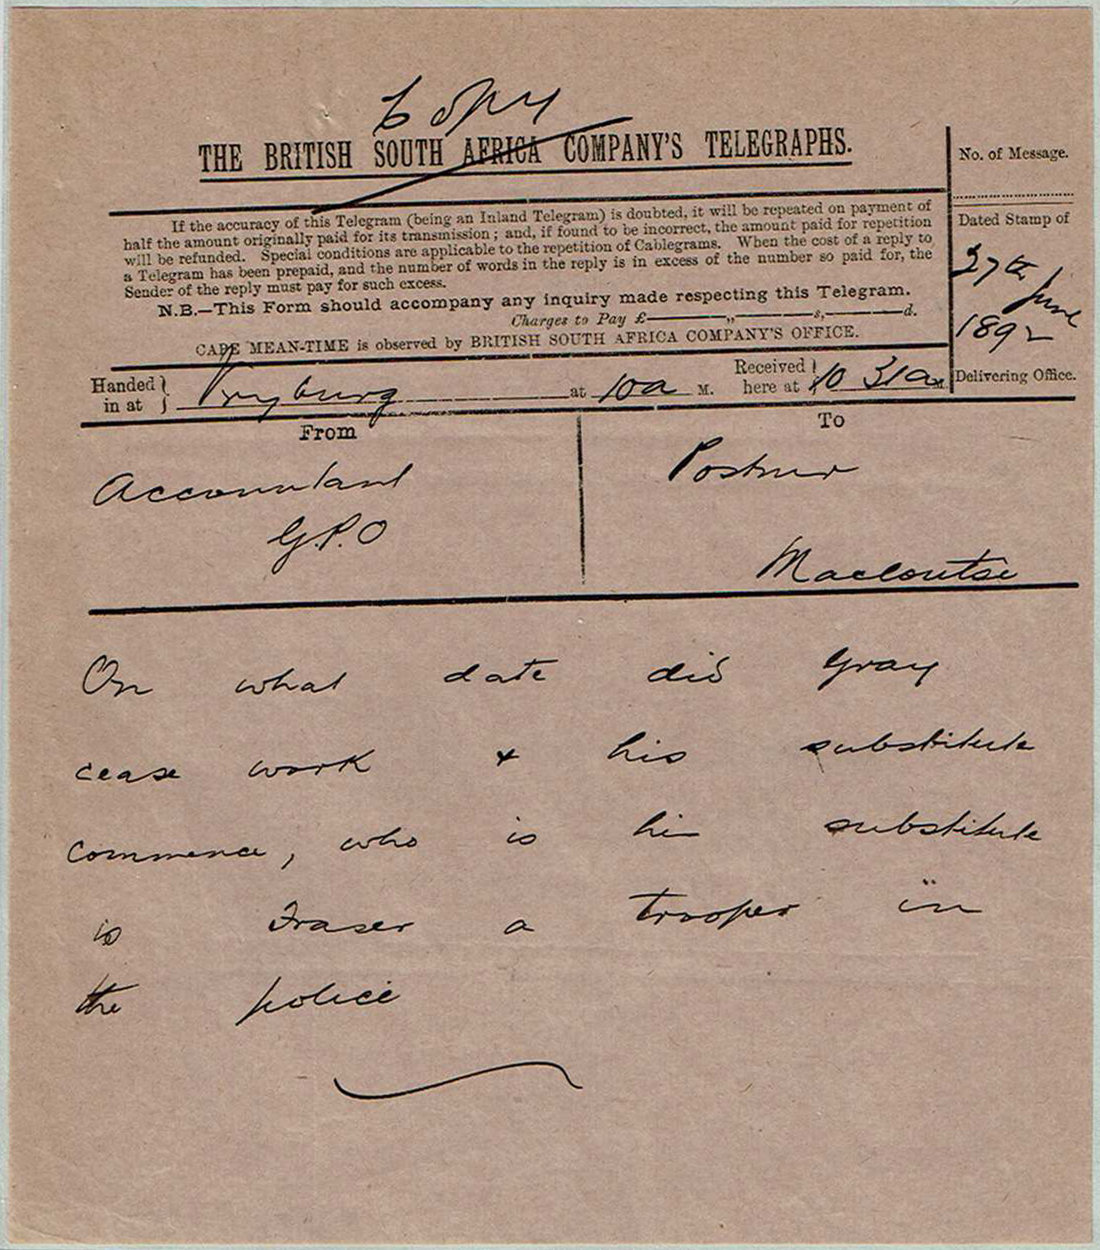 Copy
THE BRITISH SOUTH AFRICA COMPANY'S TELEGRAPHS.
No. of Message.
If the accuracy of this Telegram (being an Inland Telegram) is doubted, it will be repeated on payment of
half the amount originally paid for its transmission; and, if found to be incorrect, the amount paid for repetition
will be refunded. Special conditions are applicable to the repetition of Cablegrams. When the cost of a reply to
a Telegram has been prepaid, and the number of words in the reply is in excess of the number so paid for, the
Sender of the reply must pay for such excess.
N.B.—This Form should accompany any inquiry made respecting this Telegram.
Charges to Pay £ „ s, d.
CAPE MEAN-TIME is observed by BRITISH SOUTH AFRICA COMPANY'S OFFICE.
Dated Stamp of
27th June
1892
Delivering Office.
Handed in at } Vryburg at 10a M. Received here at } 10 31a M.
From
To
Accountant
G.P.O
Postmr
Macloutsie
On what date did Gray
cease work & his substitute
commence, who is his substitute
is Fraser a trooper in
the police